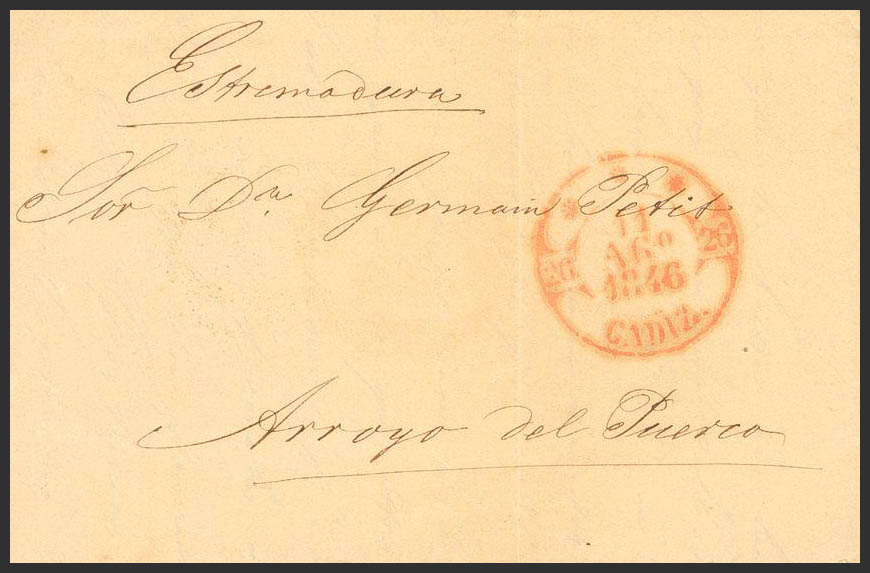 Estremadura
Sor̃ Dn. Germain Petit
11
AGº
1846
26 26
CADIZ.
Arroyo del Puerco